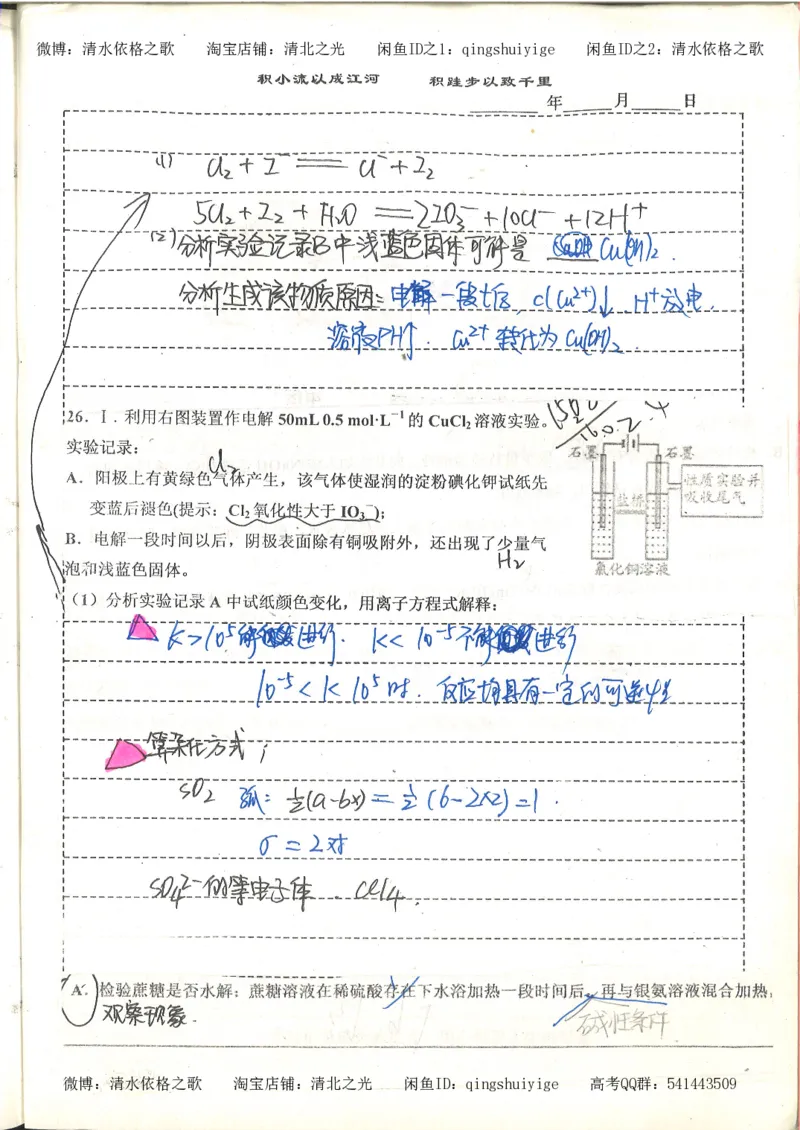 微博：清水依格之歌 淘宝店铺：清北之光 闲鱼ID之1：qingshuiyige 闲鱼ID之2：清水依格之歌
积小流以成江河 积跬步以致千里
年 月 日
(1) Cl₂ + I⁻ == Cl⁻ + I₂
5Cl₂ + I₂ + H₂O == 2IO₃⁻ + 10Cl⁻ + 12H⁺
(2) 分析实验记录B中浅蓝色固体可能是 Cu(OH)₂.
分析生成该物质原因：电解一段t后，c(Cu²⁺)↓. H⁺放电.
溶液PH↑. Cu²⁺转化为Cu(OH)₂
26．Ⅰ．利用右图装置作电解 50mL 0.5 mol·L⁻¹ 的 CuCl₂ 溶液实验。
实验记录：
Cl₂
A．阳极上有黄绿色气体产生，该气体使湿润的淀粉碘化钾试纸先
变蓝后褪色(提示：Cl₂氧化性大于 IO₃⁻)；
B．电解一段时间以后，阴极表面除有铜吸附外，还出现了少量气
H₂
泡和浅蓝色固体。
石墨 石墨
性质实验并
吸收尾气
盐桥
氯化铜溶液
（1）分析实验记录 A 中试纸颜色变化，用离子方程式解释：
K>10⁵ 进行. K< 10⁻⁵ 不 进行
10⁻⁵ < K 10⁵ 时. 反应均具有一定的可逆性
算杂化方式；
SO₂ 孤：½(a-bx) = ½(6-2×2)=1.
σ = 2对
SO₄²⁻的等电子体 . CCl₄.
A．检验蔗糖是否水解：蔗糖溶液在稀硫酸存在下水浴加热一段时间后，再与银氨溶液混合加热，
观察现象.
碱性条件
微博：清水依格之歌 淘宝店铺：清北之光 闲鱼ID：qingshuiyige 高考QQ群：541443509